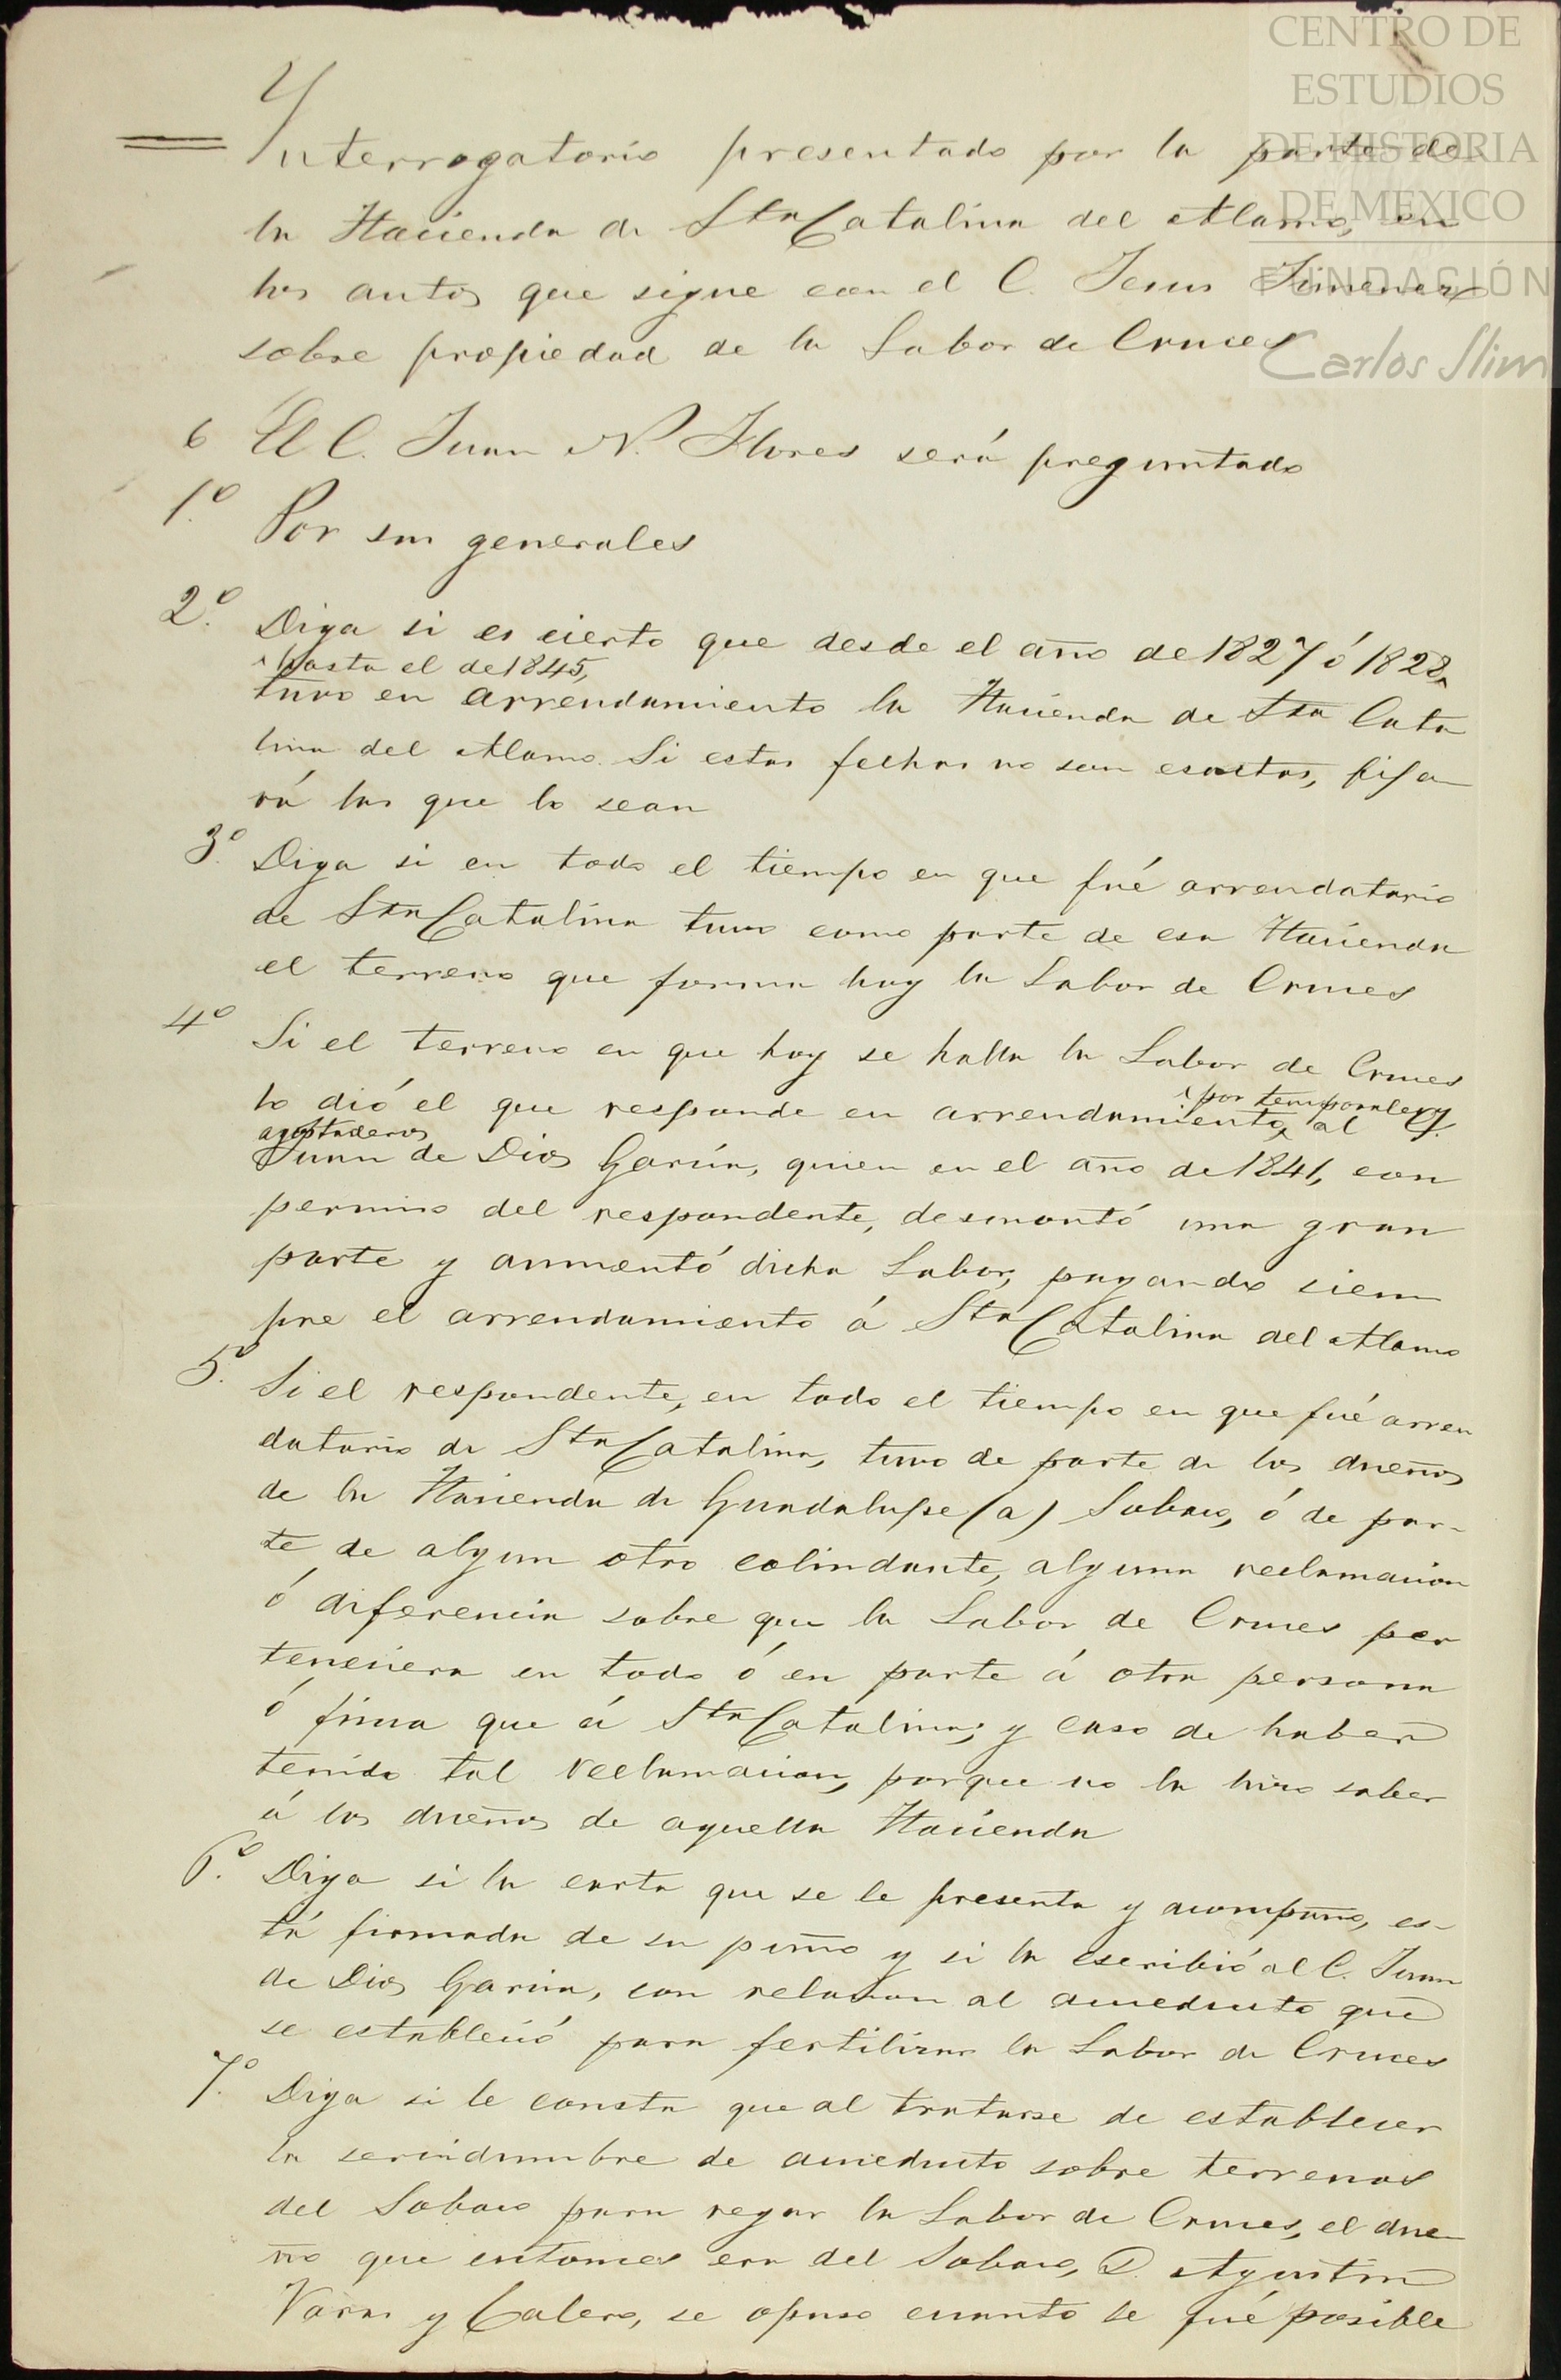 CENTRO DE
ESTUDIOS
DE HISTORIA
DE MEXICO
FUNDACIÓN
Carlos Slim
Ynterrogatorio presentado por la parte de
la Hacienda de Sta Catalina del Alamo, en
los autos que sigue con el C. Jesus Jimenez
sobre propiedad de la Labor de Cruces
6 El C. Juan N. Flores será preguntado
1.º Por sus generales
2.º Diga si es cierto que desde el año de 1827 ó 1828
hasta el de 1845,
tuvo en arrendamiento la Hacienda de Sta Cata
lina del Alamo. Si estas fechas no son esactas, fija
rá las que lo sean
3.º Diga si en todo el tiempo en que fué arrendatario
de Sta Catalina tuvo como parte de esa Hacienda
el terreno que forma hoy la Labor de Cruces
4º Si el terreno en que hoy se halla la Labor de Cruces
por temporales y
lo dió el que responde en arrendamiento, al C.
agostaderos
Juan de Dios Garcia, quien en el año de 1841, con
permiso del respondente, desmontó una gran
parte y aumentó dicha Labor, pagando siem
pre el arrendamiento á Sta Catalina del Alamo
5.º Si el respondente, en todo el tiempo en que fué arren
datario de Sta Catalina, tuvo de parte de los dueños
de la Hacienda de Guadalupe (a) Sobaco, ó de par-
te de algun otro colindante, alguna reclamacion
ó diferencia sobre que la Labor de Cruces per
teneciera en todo ó en parte á otra persona
ó finca que á Sta Catalina; y caso de haber
tenido tal reclamacion, porque no la hizo saber
á los dueños de aquella Hacienda
6.º Diga si la carta que se le presenta y acompaño, es-
tá firmada de su puño y si la escribió al C. Juan
de Dios Garcia, con relacion al acueducto que
se estableció para fertilizar la Labor de Cruces
7.º Diga si le consta que al tratarse de establecer
la servidumbre de acueducto sobre terrenos
del Sobaco para regar la Labor de Cruces, el due
ño que entonces era del Sobaco, D. Agustin
y Calero, se opuso cuanto le fué posible